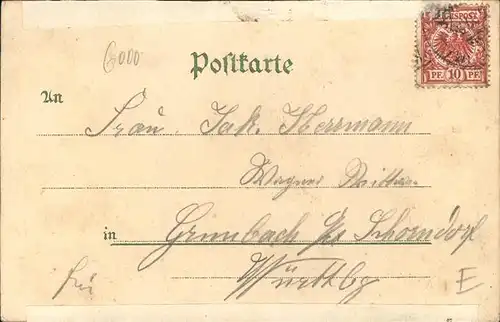 REICHSPOST
PF. 10 PF.
6000
Postkarte
An
Frau. Jak. Herrmann
Wagner Witwe
in Grunbach b/ Schorndorf
Württbg
frei
E